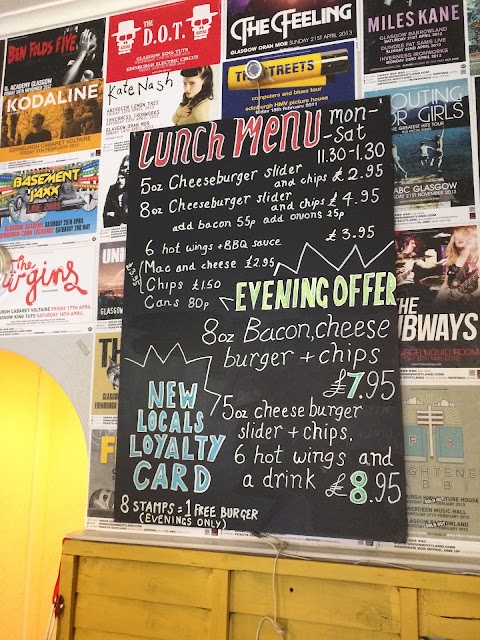 BEN FOLDS FIVE
THE
D.O.T.
GLASGOW KING TUTS
EDINBURGH ELECTRIC CIRCUS
THE FEELING
GLASGOW ORAN MOR SUNDAY 21ST APRIL 2013
MILES KANE
GLASGOW BARROWLAND
KODALINE
Kate Nash
THE STREETS
computers and blues tour
edinburgh HMV picture house
OUTING
FOR GIRLS
ABC GLASGOW
BASEMENT
JAXX
The
Virgins
THE
UBWAYS
LUNCH MENU mon-
-Sat
11.30-1.30
5oz Cheeseburger slider
and chips £2.95
8oz Cheeseburger slider
and chips £4.95
add bacon 55p add onions 25p
6 hot wings + BBQ sauce £3.95
Mac and cheese £2.95
Chips £1.50
Cans 80p
£3.95
EVENING OFFER
8oz Bacon, cheese
burger + chips
£7.95
5oz cheese burger
slider + chips,
6 hot wings and
a drink £8.95
NEW
LOCALS
LOYALTY
CARD
8 STAMPS = 1 FREE BURGER
(EVENINGS ONLY)